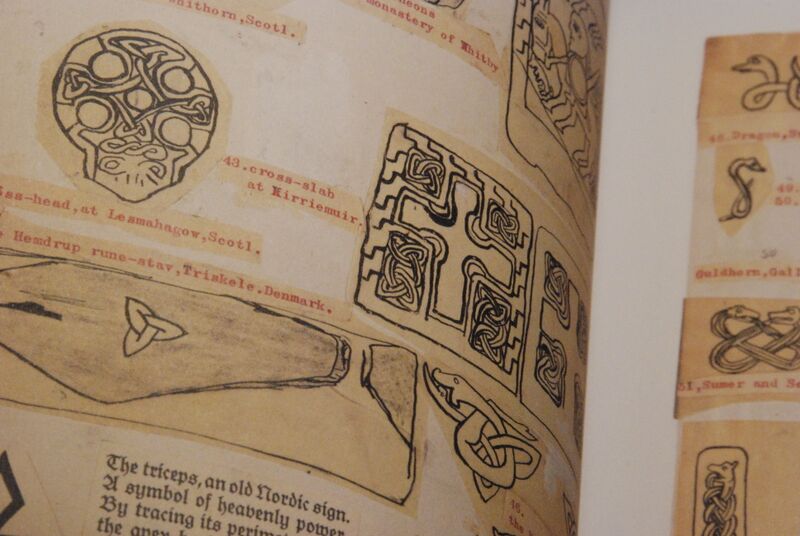 Whithorn,Scotl.
monastery of Whitby
43.cross-slab
at Kirriemuir.
-head, at Lesmahagow,Scotl.
Hemdrup rune-stav,Triskele.Denmark.
The triceps, an old Nordic sign.
A symbol of heavenly power.
By tracing its
the apex
46.
48.Dragon,
49.
50.
50
Guldhorn,Gall
51,Sumer and